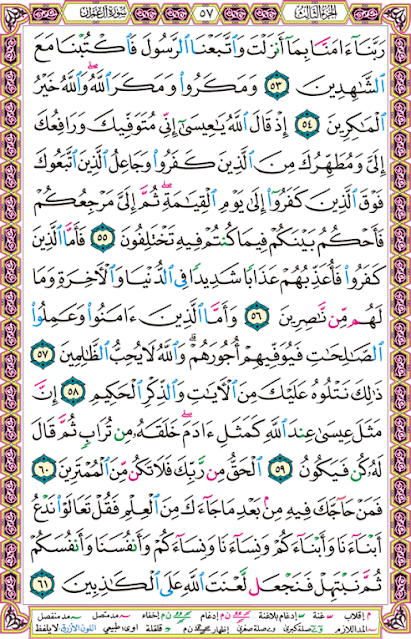 الجزء الثالث
٥٧
سورة آل عمران
رَبَّنَآ ءَامَنَّا بِمَآ أَنزَلْتَ وَٱتَّبَعْنَا ٱلرَّسُولَ فَٱكْتُبْنَا مَعَ
ٱلشَّٰهِدِينَ ٥٣ وَمَكَرُوا۟ وَمَكَرَ ٱللَّهُ وَٱللَّهُ خَيْرُ
ٱلْمَٰكِرِينَ ٥٤ إِذْ قَالَ ٱللَّهُ يَٰعِيسَىٰٓ إِنِّى مُتَوَفِّيكَ وَرَافِعُكَ
إِلَىَّ وَمُطَهِّرُكَ مِنَ ٱلَّذِينَ كَفَرُوا۟ وَجَاعِلُ ٱلَّذِينَ ٱتَّبَعُوكَ
فَوْقَ ٱلَّذِينَ كَفَرُوٓا۟ إِلَىٰ يَوْمِ ٱلْقِيَٰمَةِ ۖ ثُمَّ إِلَىَّ مَرْجِعُكُمْ
فَأَحْكُمُ بَيْنَكُمْ فِيمَا كُنتُمْ فِيهِ تَخْتَلِفُونَ ٥٥ فَأَمَّا ٱلَّذِينَ
كَفَرُوا۟ فَأُعَذِّبُهُمْ عَذَابًا شَدِيدًا فِى ٱلدُّنْيَا وَٱلْءَاخِرَةِ وَمَا
لَهُم مِّن نَّٰصِرِينَ ٥٦ وَأَمَّا ٱلَّذِينَ ءَامَنُوا۟ وَعَمِلُوا۟
ٱلصَّٰلِحَٰتِ فَيُوَفِّيهِمْ أُجُورَهُمْ ۗ وَٱللَّهُ لَا يُحِبُّ ٱلظَّٰلِمِينَ ٥٧
ذَٰلِكَ نَتْلُوهُ عَلَيْكَ مِنَ ٱلْءَايَٰتِ وَٱلذِّكْرِ ٱلْحَكِيمِ ٥٨ إِنَّ
مَثَلَ عِيسَىٰ عِندَ ٱللَّهِ كَمَثَلِ ءَادَمَ ۖ خَلَقَهُۥ مِن تُرَابٍ ثُمَّ قَالَ
لَهُۥ كُن فَيَكُونُ ٥٩ ٱلْحَقُّ مِن رَّبِّكَ فَلَا تَكُن مِّنَ ٱلْمُمْتَرِينَ ٦٠
فَمَنْ حَآجَّكَ فِيهِ مِنۢ بَعْدِ مَا جَآءَكَ مِنَ ٱلْعِلْمِ فَقُلْ تَعَالَوْا۟ نَدْعُ
أَبْنَآءَنَا وَأَبْنَآءَكُمْ وَنِسَآءَنَا وَنِسَآءَكُمْ وَأَنفُسَنَا وَأَنفُسَكُمْ
ثُمَّ نَبْتَهِلْ فَنَجْعَل لَّعْنَتَ ٱللَّهِ عَلَى ٱلْكَٰذِبِينَ ٦١